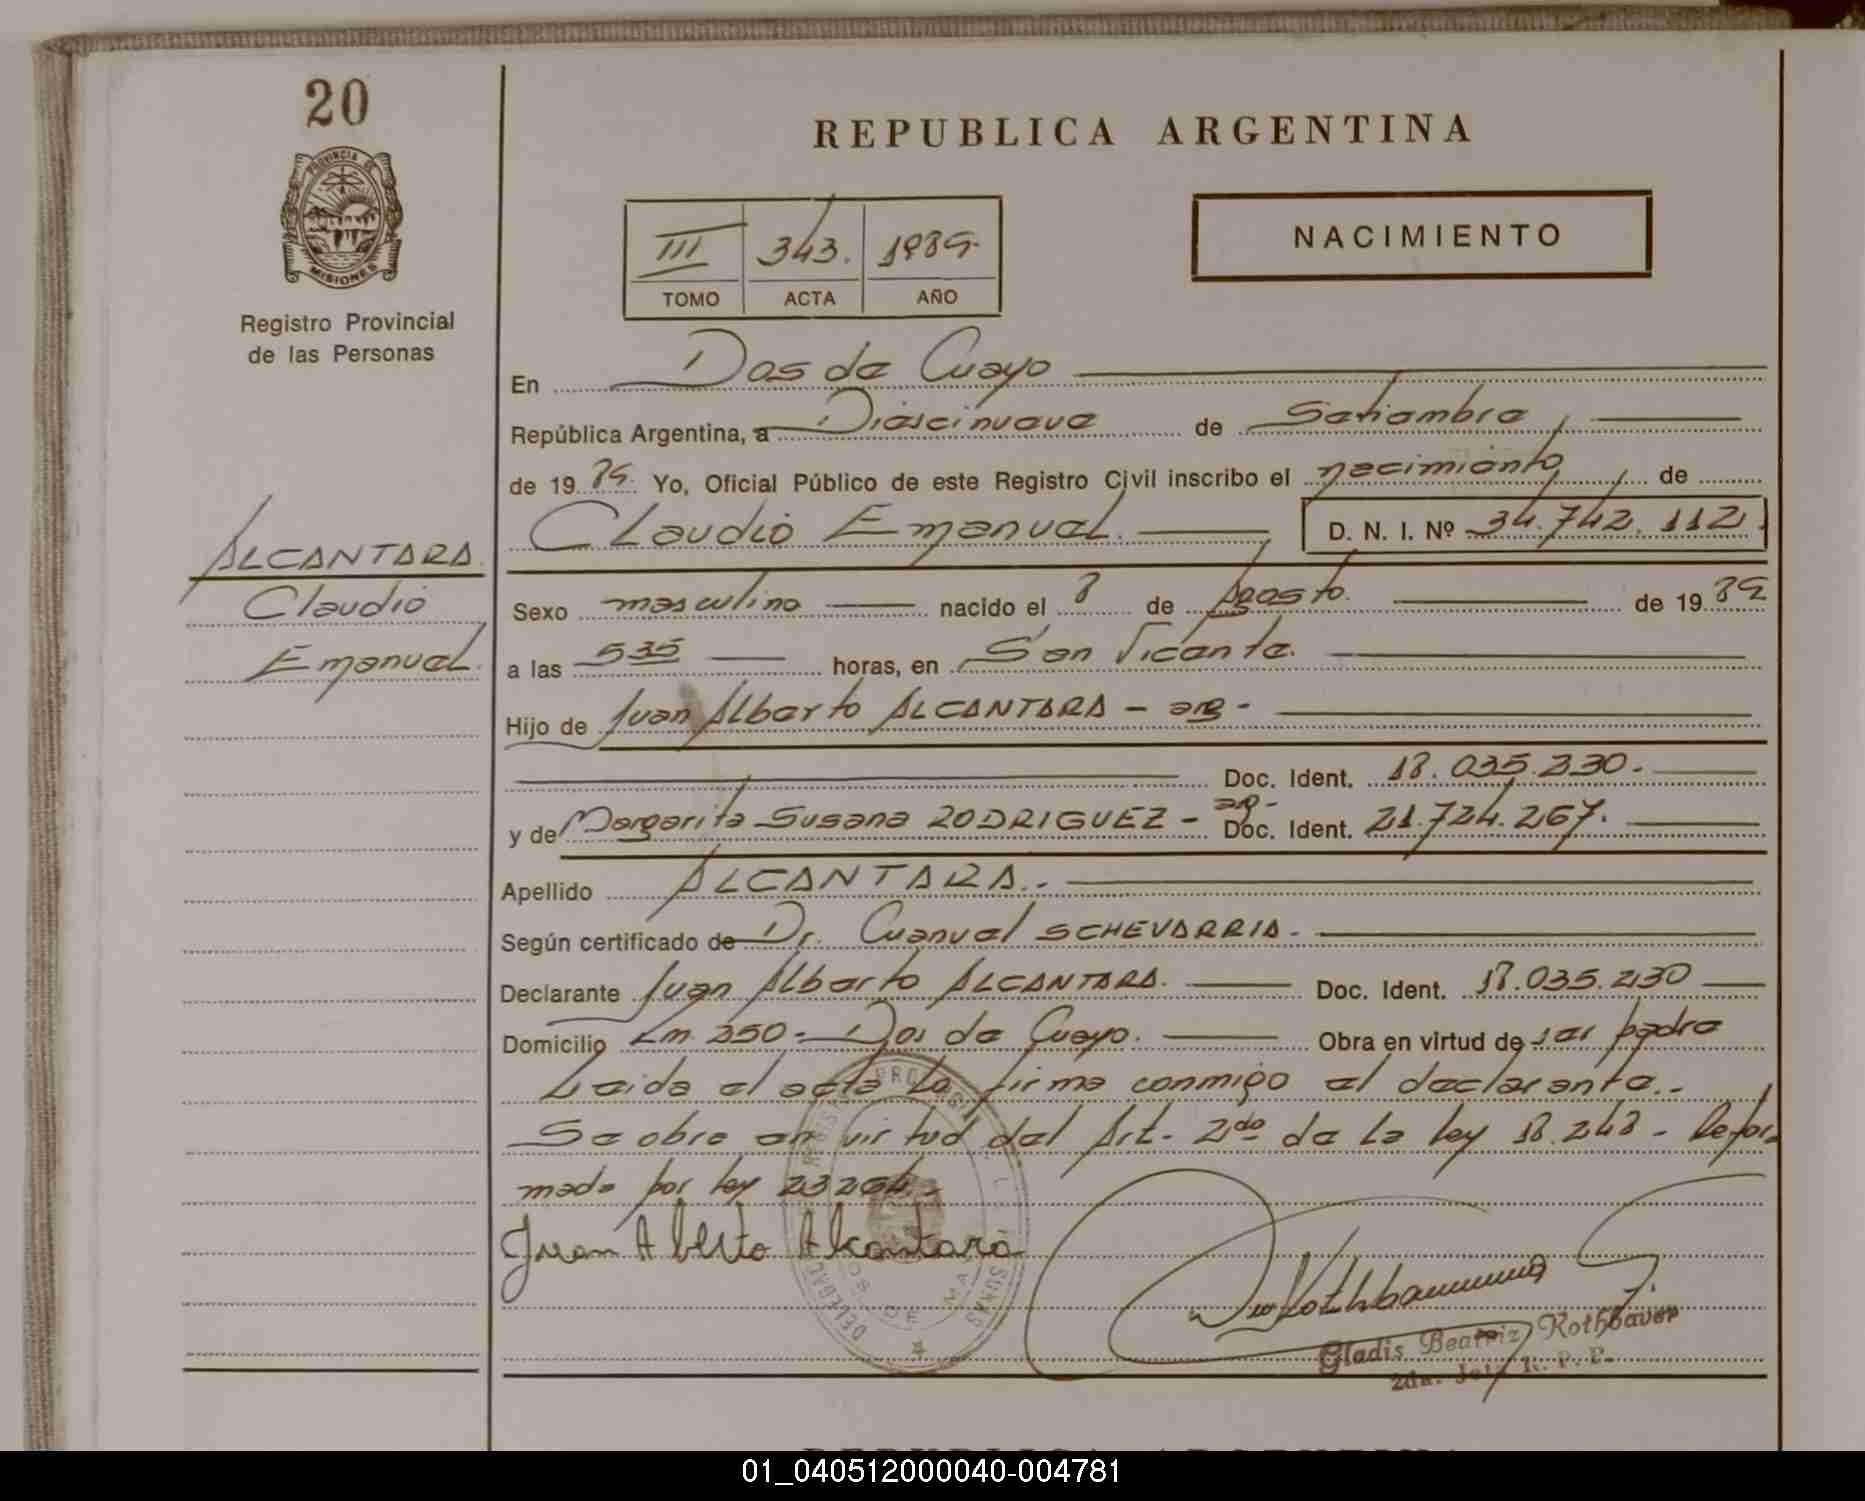 20
PROVINCIA DE
MISIONES
Registro Provincial
de las Personas
ALCANTARA
Claudio
Emanuel.
REPUBLICA ARGENTINA
III 343. 1989.
TOMO ACTA AÑO
NACIMIENTO
En Dos de Mayo
República Argentina, a Diescinueve de Setiembre
de 19 89. Yo, Oficial Público de este Registro Civil inscribo el nacimiento de
Claudio Emanuel. D. N. I. Nº 34.742.112.
Sexo masculino nacido el 8 de Agosto. de 19 89
a las 535 horas, en San Vicente.
Hijo de Juan Alberto ALCANTARA - arg -
Doc. Ident. 18.035.230.
y de Margarita Susana RODRIGUEZ - arg - Doc. Ident. 21.724.267.
Apellido ALCANTARA.-
Según certificado de Dr. Manuel SCHEVARRIA.
Declarante Juan Alberto ALCANTARA. Doc. Ident. 18.035.230
Domicilio Km. 250 - Dos de Mayo. Obra en virtud de ser padre
Leida el acta la firma conmigo el declarante.-
Se obre en virtud del Art. 2do de la ley 18.248 - Refor
mada por ley 23264.-
Juan Alberto Alcantara
DOS DE MAYO
Gladis Beatriz Rothbauer
2da. Jefa R. P. P.
01_040512000040-004781